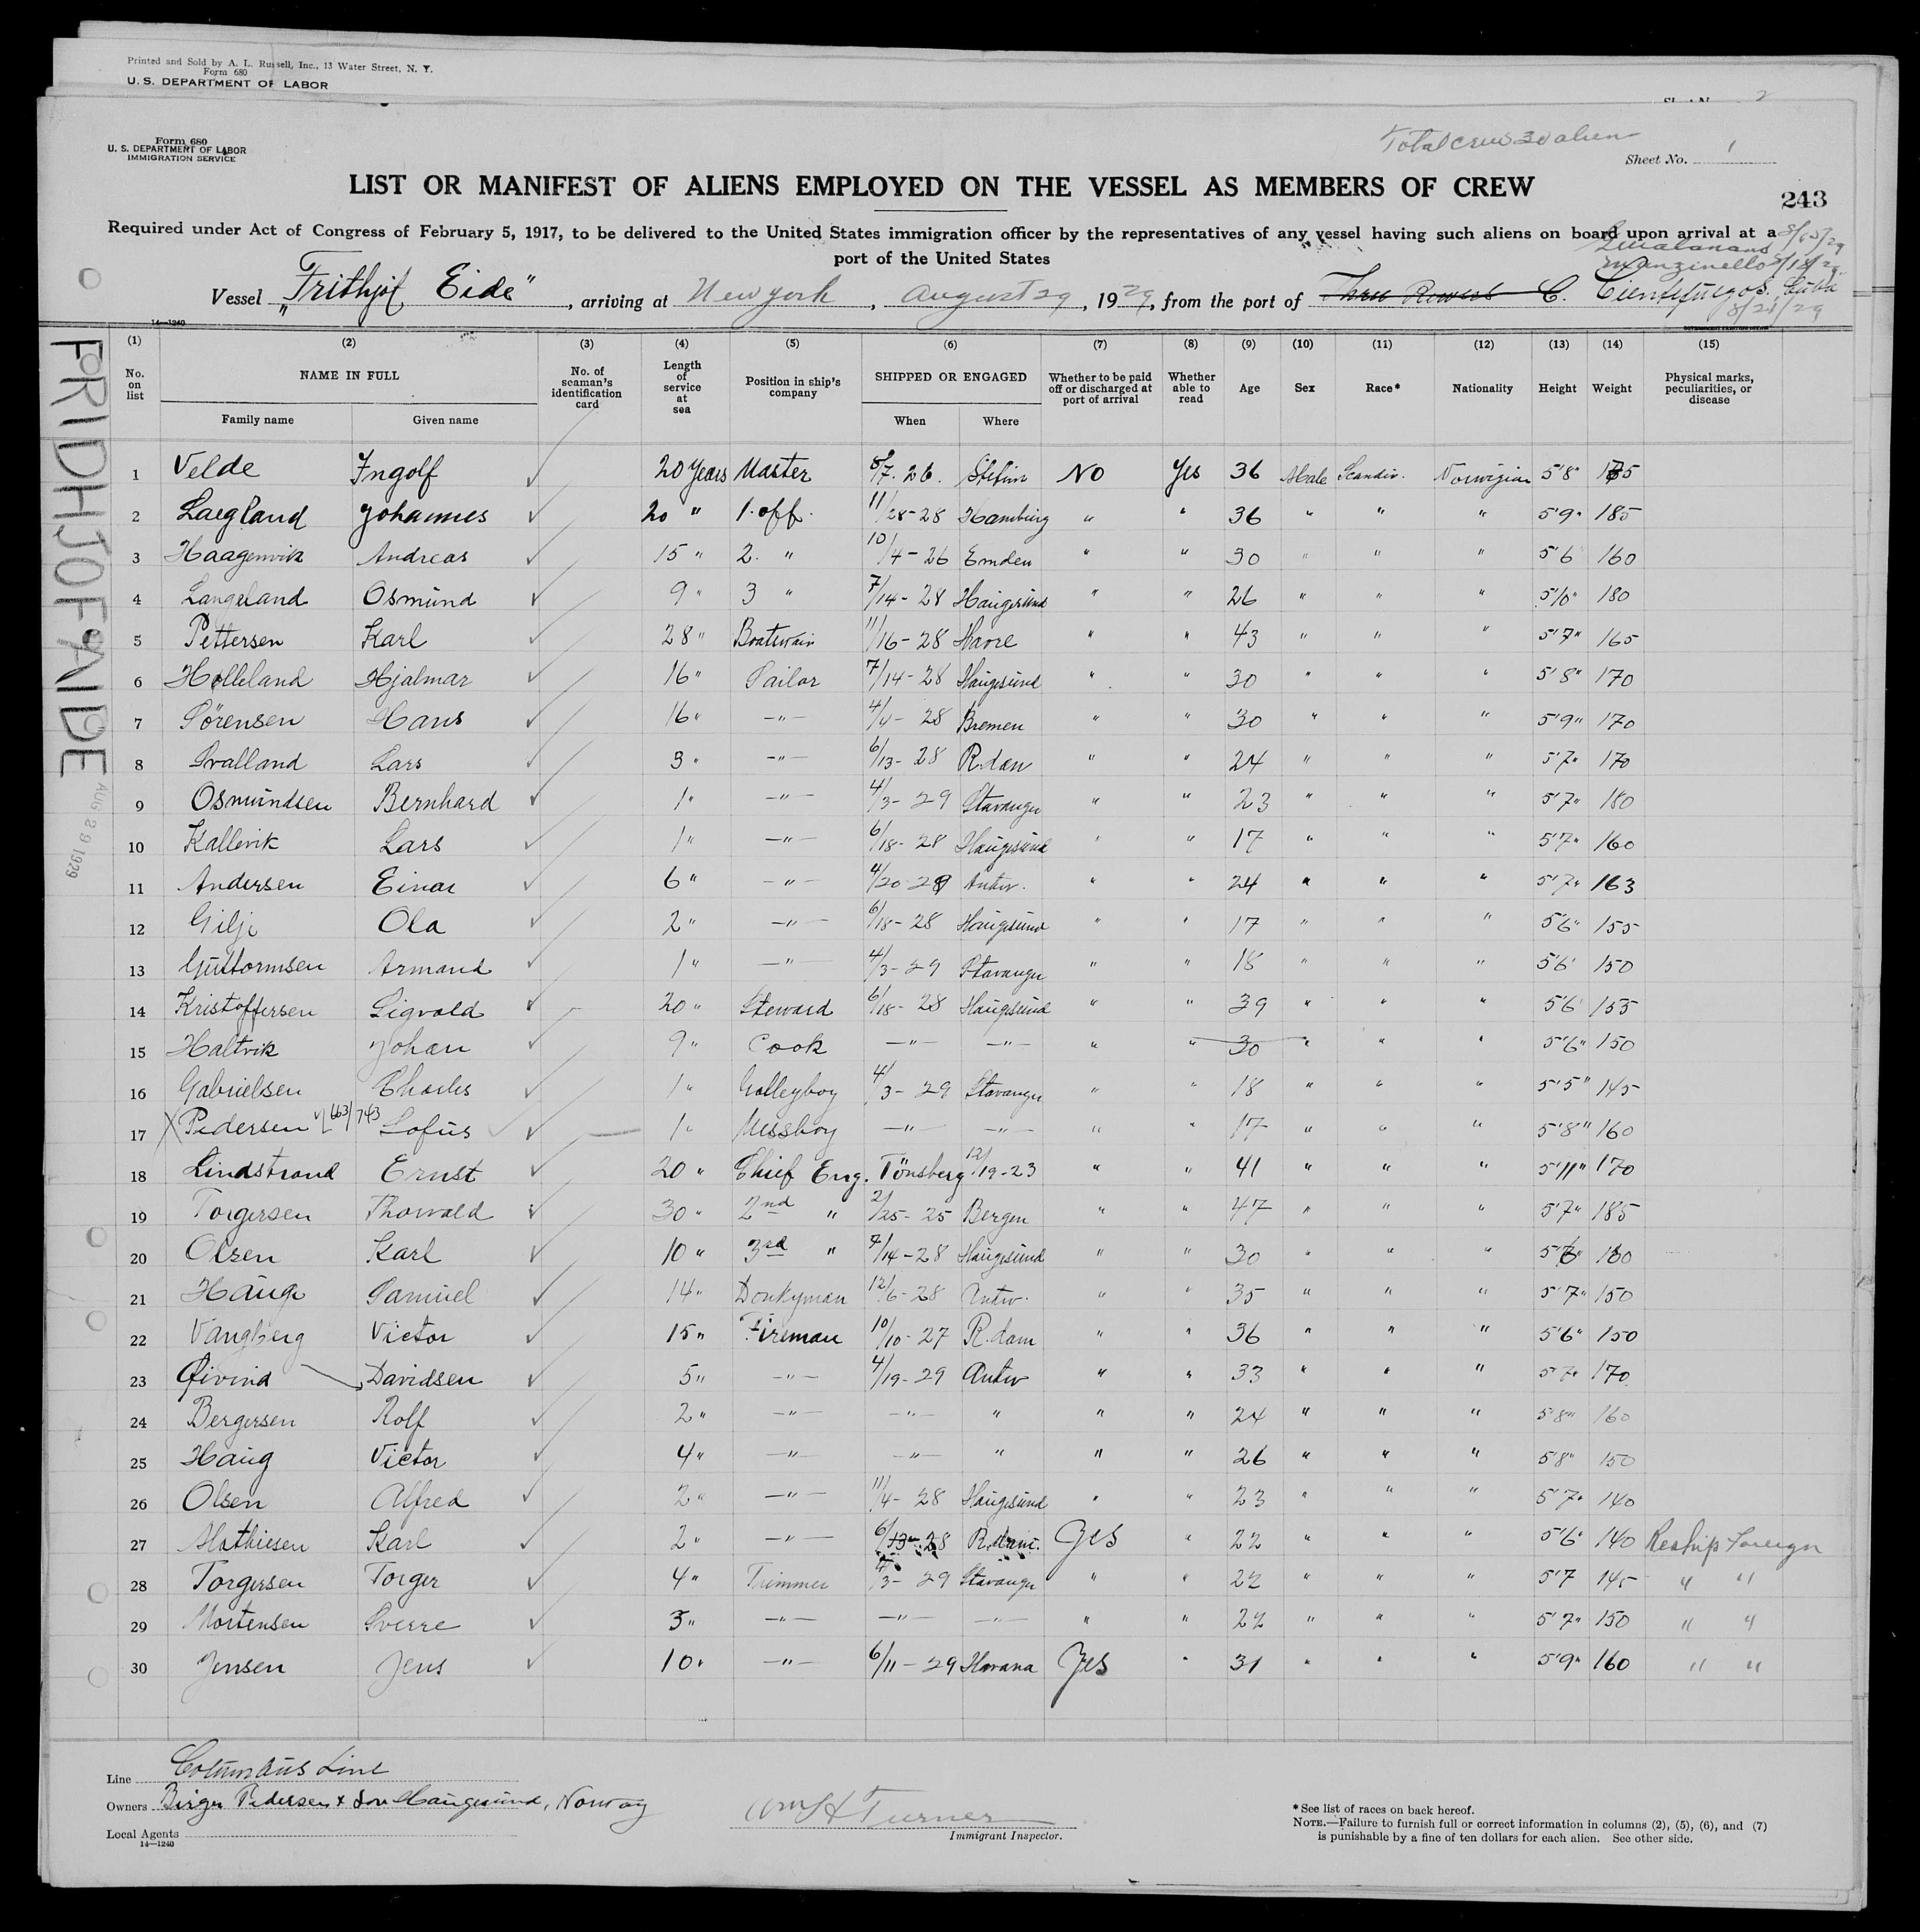 Printed and Sold by A. L. Russell, Inc., 13 Water Street, N. Y.
Form 680
U. S. DEPARTMENT OF LABOR
2
Form 680
U. S. DEPARTMENT OF LABOR
IMMIGRATION SERVICE
Total crew 30 alien
Sheet No. 1
LIST OR MANIFEST OF ALIENS EMPLOYED ON THE VESSEL AS MEMBERS OF CREW
243
Required under Act of Congress of February 5, 1917, to be delivered to the United States immigration officer by the representatives of any vessel having such aliens on board upon arrival at a
port of the United States
Manzinello 8/18/29
Vessel "Frithjof Eide", arriving at New York, August 29, 1929, from the port of Three Rowers C. Cienfuegos, Cuba
8/21/29
14—1240
(1) (2) (3) (4) (5) (6) (7) (8) (9) (10) (11) (12) (13) (14) (15)
No. on list NAME IN FULL No. of seaman's identification card Length of service at sea Position in ship's company SHIPPED OR ENGAGED Whether to be paid off or discharged at port of arrival Whether able to read Age Sex Race* Nationality Height Weight Physical marks, peculiarities, or disease
Family name Given name When Where
FRIDHJOF EIDE
AUG 29 1929
1 Velde Ingolf 20 Years Master 8/7. 26. Stettin No Yes 36 Male Scandiv. Norwigian 5'8" 175
2 Laegland Johannes 20 " 1. off. 11/28-28 Hamburg " " 36 " " " 5'9" 185
3 Haagenvik Andreas 15 " 2. " 10/4-26 Emden " " 30 " " " 5'6 160
4 Langeland Osmund 9 " 3 " 7/14-28 Haugesund " " 26 " " " 5'10" 180
5 Pettersen Karl 28 " Boatswain 11/16-28 Havre " " 43 " " " 5'7" 165
6 Holleland Hjalmar 16 " Sailor 7/14-28 Haugesund " " 30 " " " 5'8" 170
7 Sörensen Hans 16 " —"— 4/4-28 Bremen " " 30 " " " 5'9" 170
8 Svalland Lars 3 " —"— 6/13-28 R.dam " " 24 " " " 5'7" 170
9 Osmundsen Bernhard 1 " —"— 4/3-29 Stavanger " " 23 " " " 5'7" 180
10 Kallevik Lars 1 " —"— 6/18-28 Haugesund " " 17 " " " 5'7" 160
11 Andersen Einar 6 " —"— 4/20-29 Antw. " " 24 " " " 5'7" 163
12 Gilje Ola 2 " —"— 6/18-28 Haugesund " " 17 " " " 5'6" 155
13 Guttormsen Armand 1 " —"— 4/3-29 Stavanger " " 18 " " " 5'6' 150
14 Kristoffersen Sigvald 20 " Steward 6/18-28 Haugesund " " 39 " " " 5'6' 155
15 Haltvik Johan 9 " Cook —"— —"— " " 30 " " " 5'6" 150
16 Gabrielsen Charles 1 " Galleyboy 4/3-29 Stavanger " " 18 " " " 5'5" 145
17 X Pedersen 663/743 Sofus 1 " Messboy —"— —"— " " 17 " " " 5'8" 160
18 Lindstrand Ernst 20 " Chief Eng. Tönsberg 12/19-23 " " 41 " " " 5'11" 170
19 Torgersen Thorvald 30 " 2nd " 2/25-25 Bergen " " 47 " " " 5'7" 185
20 Olsen Karl 10 " 3rd " 7/14-28 Haugesund " " 30 " " "
21 Hauge Samuel 14 " Donkyman 12/6-28 Antw. " " 35 " " " 5'7" 150
22 Vangberg Victor 15 " Fireman 10/10-27 R.dam " " 36 " " " 5'6" 150
23 Øivind Davidsen 5 " —"— 4/19-29 Antw " " 33 " " " 5'7" 170
24 Bergersen Rolf 2 " —"— —"— " " " 24 " " " 5'8" 160
25 Haug Victor 4 " —"— —"— " " " 26 " " " 5'8" 150
26 Olsen Alfred 2 " —"— 11/4-28 Haugesund " " 23 " " " 5'7" 140
27 Mathiesen Karl 2 " —"— 6/13-28 R.dam. Yes " 22 " " " 5'6" 140 Reship Foreign
28 Torgersen Torger 4 " Trimmer 4/3-29 Stavanger " " 22 " " " 5'7 145 " "
29 Mortensen Sverre 3 " —"— —"— —"— " " 22 " " " 5'7" 150 " "
30 Jensen Jens 10 " —"— 6/11-29 Havana Yes " 31 " " " 5'9" 160 " "
Line Columbus Line
Owners Birger Pedersen & Son Haugesund, Norway
Local Agents
14—1240
Wm H Turner
Immigrant Inspector.
*See list of races on back hereof.
NOTE.—Failure to furnish full or correct information in columns (2), (5), (6), and (7)
is punishable by a fine of ten dollars for each alien. See other side.